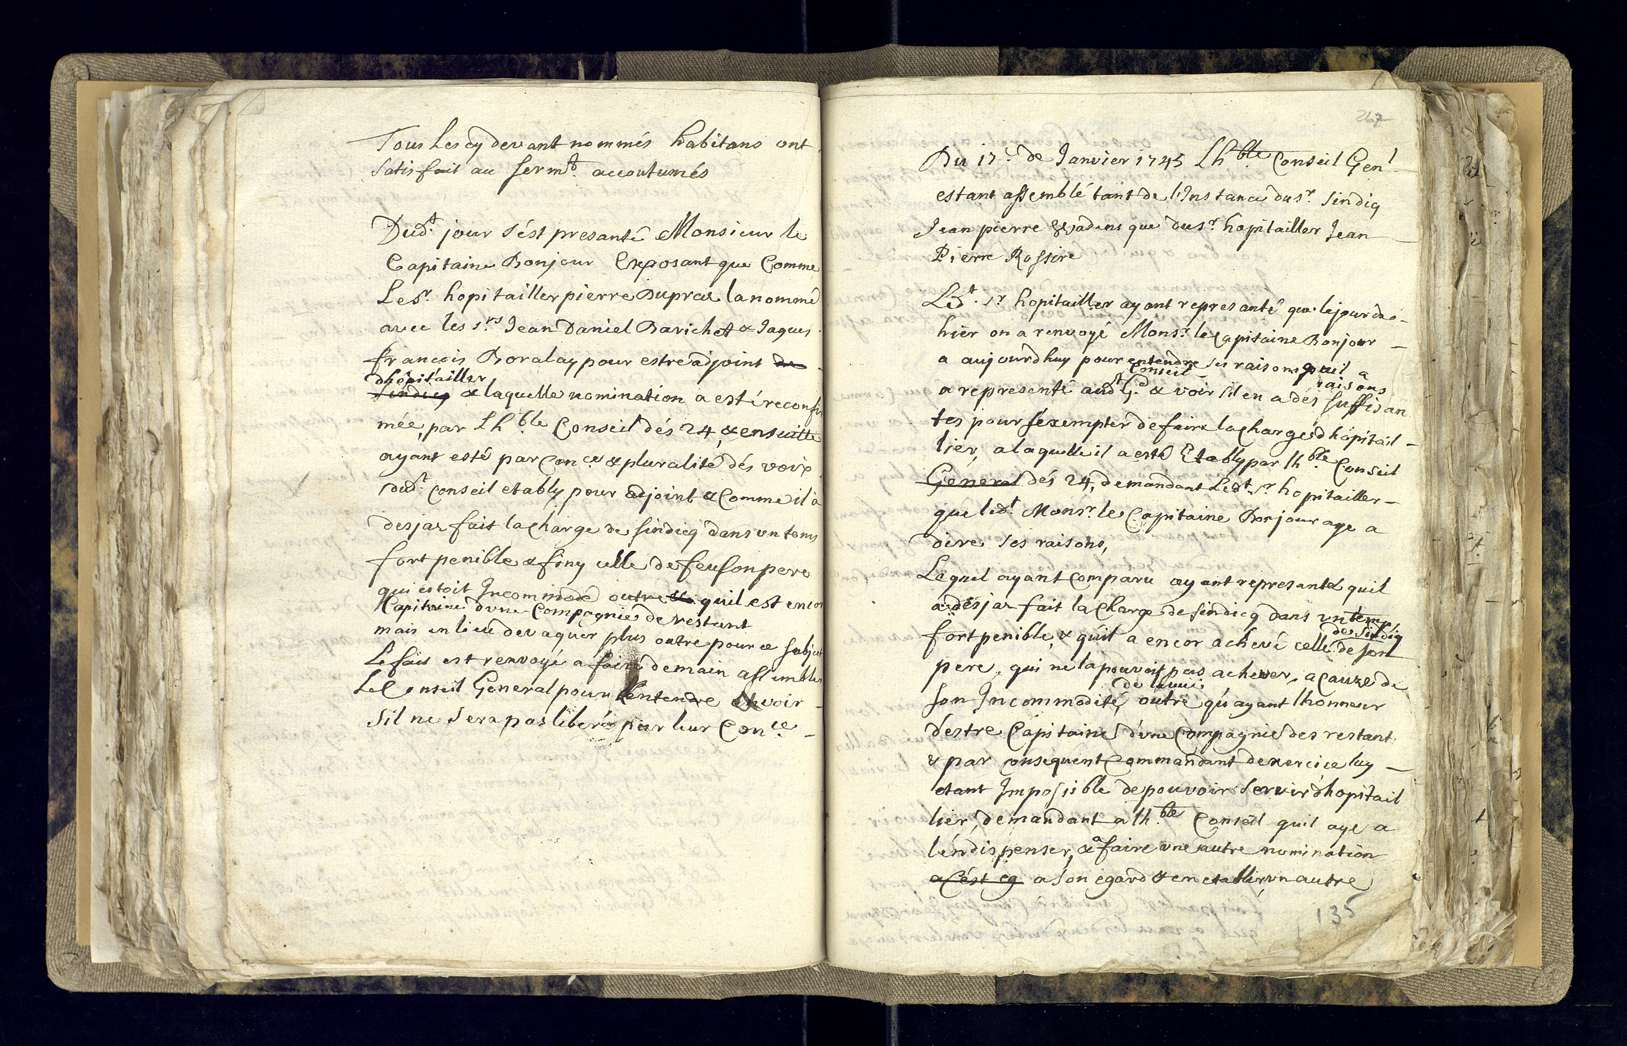 Tous Les cy devant nommés habitans ont
satisfait au serm.t accoutumés
Dud.t jour s'ést presanté Monsieur le
Capitaine Bonjour Exposant que Comme
Le S.r hopitailler pierre Dupraz la nommé
avec les S.rs Jean Daniel Barichet & Jaques
françois Boralay pour estre adjoint de
dhôpitailler
sindicq & laquelle nomination a esté reconfir
mée, par Lh.ble Conseil dés 24, & ensuitte
ayant esté par Con.ce & pluralité dés voix
dud.t Conseil etably pour adjoint & Comme il a
desjas fait la charge de sindicq dans un tems
fort penible & finy celle de feu son pere
qui estoit Incommodé outre quil est encor
Capitaine d'une Compagnie de restant
mais en lieu de vaquer plus outre pour ce subject
Le fait est renvoyé a faire demain assembler
Le Conseil General pour l'entendre & voir
S'il ne sera pas liberé par leur Con.ce
267
Du 17.e de Janvier 1745 Lh.ble Conseil Gen.l
estant assemblé tant de l'Instance du S.r Sindiq
Jean pierre que du S.r hopitailler Jean
Pierre Rossire
Led.t S.r hopitailler ayant representé que le jour d'a-
hier on a renvoyé Mons.r le Capitaine Bonjour
a aujourdhuy pour entendre ses raisons quil a
Conseil raisons
a representé aud.t G. & voir s'il en a dés suffisan
tes pour s'éxempter de faire la charge d'hôpitail-
lier, a laquelle il a esté Etably par lh.ble Conseil
General dés 24, demandant Led.t S.r hopitailler
que led.t Mons.r le Capitaine Bonjour aye a
dire ses raisons,
Lequel ayant Comparu ayant representé quil
a desjas fait la Charge de sindicq dans un temp
fort penible, & quil a encor achevé celle de son
de sindiq
pere, qui ne la pouvoit pas achever, a cause de
de la vüe
son Incommodité, outre qu'ayant lhonneur
d'estre Capitaine d'une Compagnie des restant
& par consequent Commandant d'exercice luy
etant Impossible de pouvoir servir d'hopitail
lier, demandant a lh.ble Conseil quil aye a
l'en dispenser, & a faire une autre nomination
a Cést eg a son egard & en etablir un autre
135